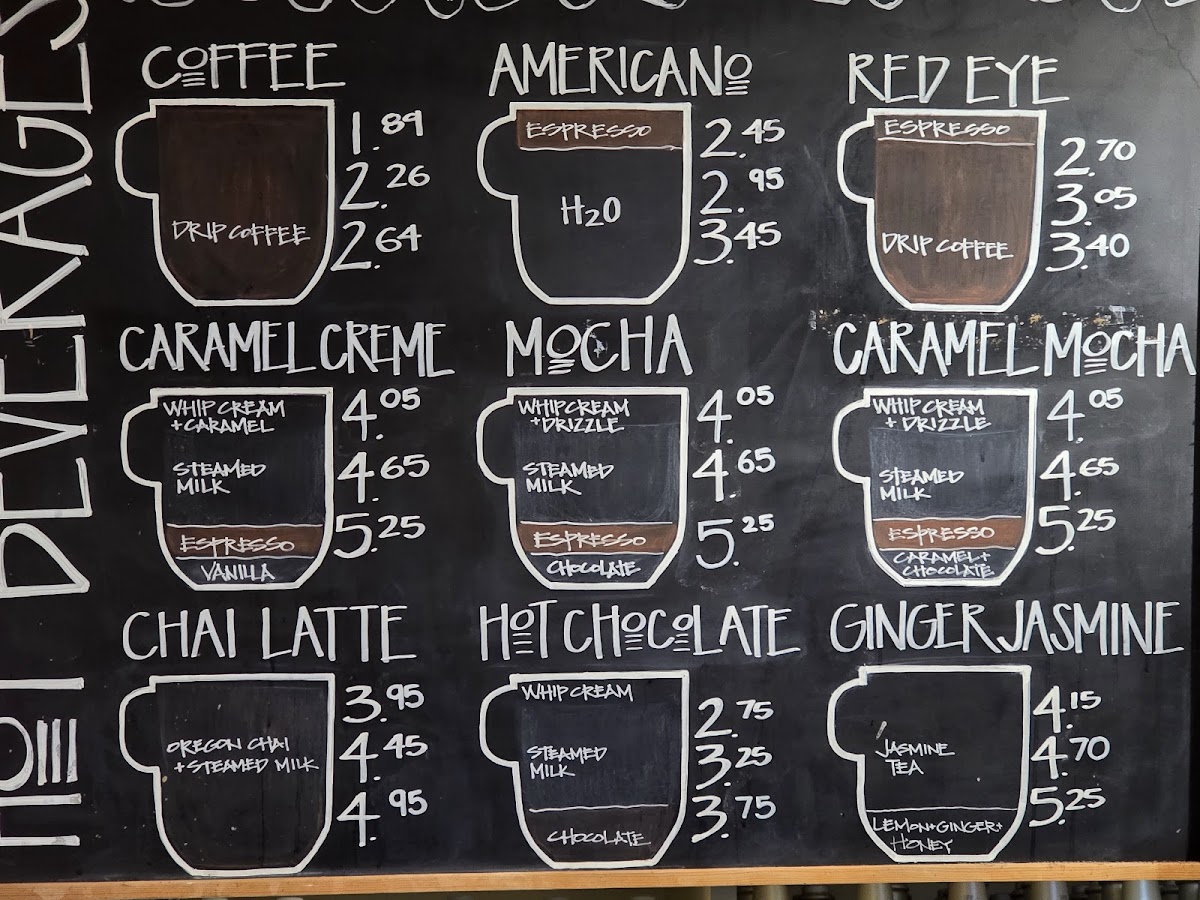 HOT BEVERAGES
COFFEE
DRIP COFFEE
1.89
2.26
2.64
AMERICANO
ESPRESSO
H2O
2.45
2.95
3.45
RED EYE
ESPRESSO
DRIP COFFEE
2.70
3.05
3.40
CARAMEL CREME
WHIP CREAM
+CARAMEL
STEAMED
MILK
ESPRESSO
VANILLA
4.05
4.65
5.25
MOCHA
WHIP CREAM
+DRIZZLE
STEAMED
MILK
ESPRESSO
CHOCOLATE
4.05
4.65
5.25
CARAMEL MOCHA
WHIP CREAM
+DRIZZLE
STEAMED
MILK
ESPRESSO
CARAMEL+
CHOCOLATE
4.05
4.65
5.25
CHAI LATTE
OREGON CHAI
+STEAMED MILK
3.95
4.45
4.95
HOT CHOCOLATE
WHIP CREAM
STEAMED
MILK
CHOCOLATE
2.75
3.25
3.75
GINGER JASMINE
JASMINE
TEA
LEMON+GINGER+
HONEY
4.15
4.70
5.25